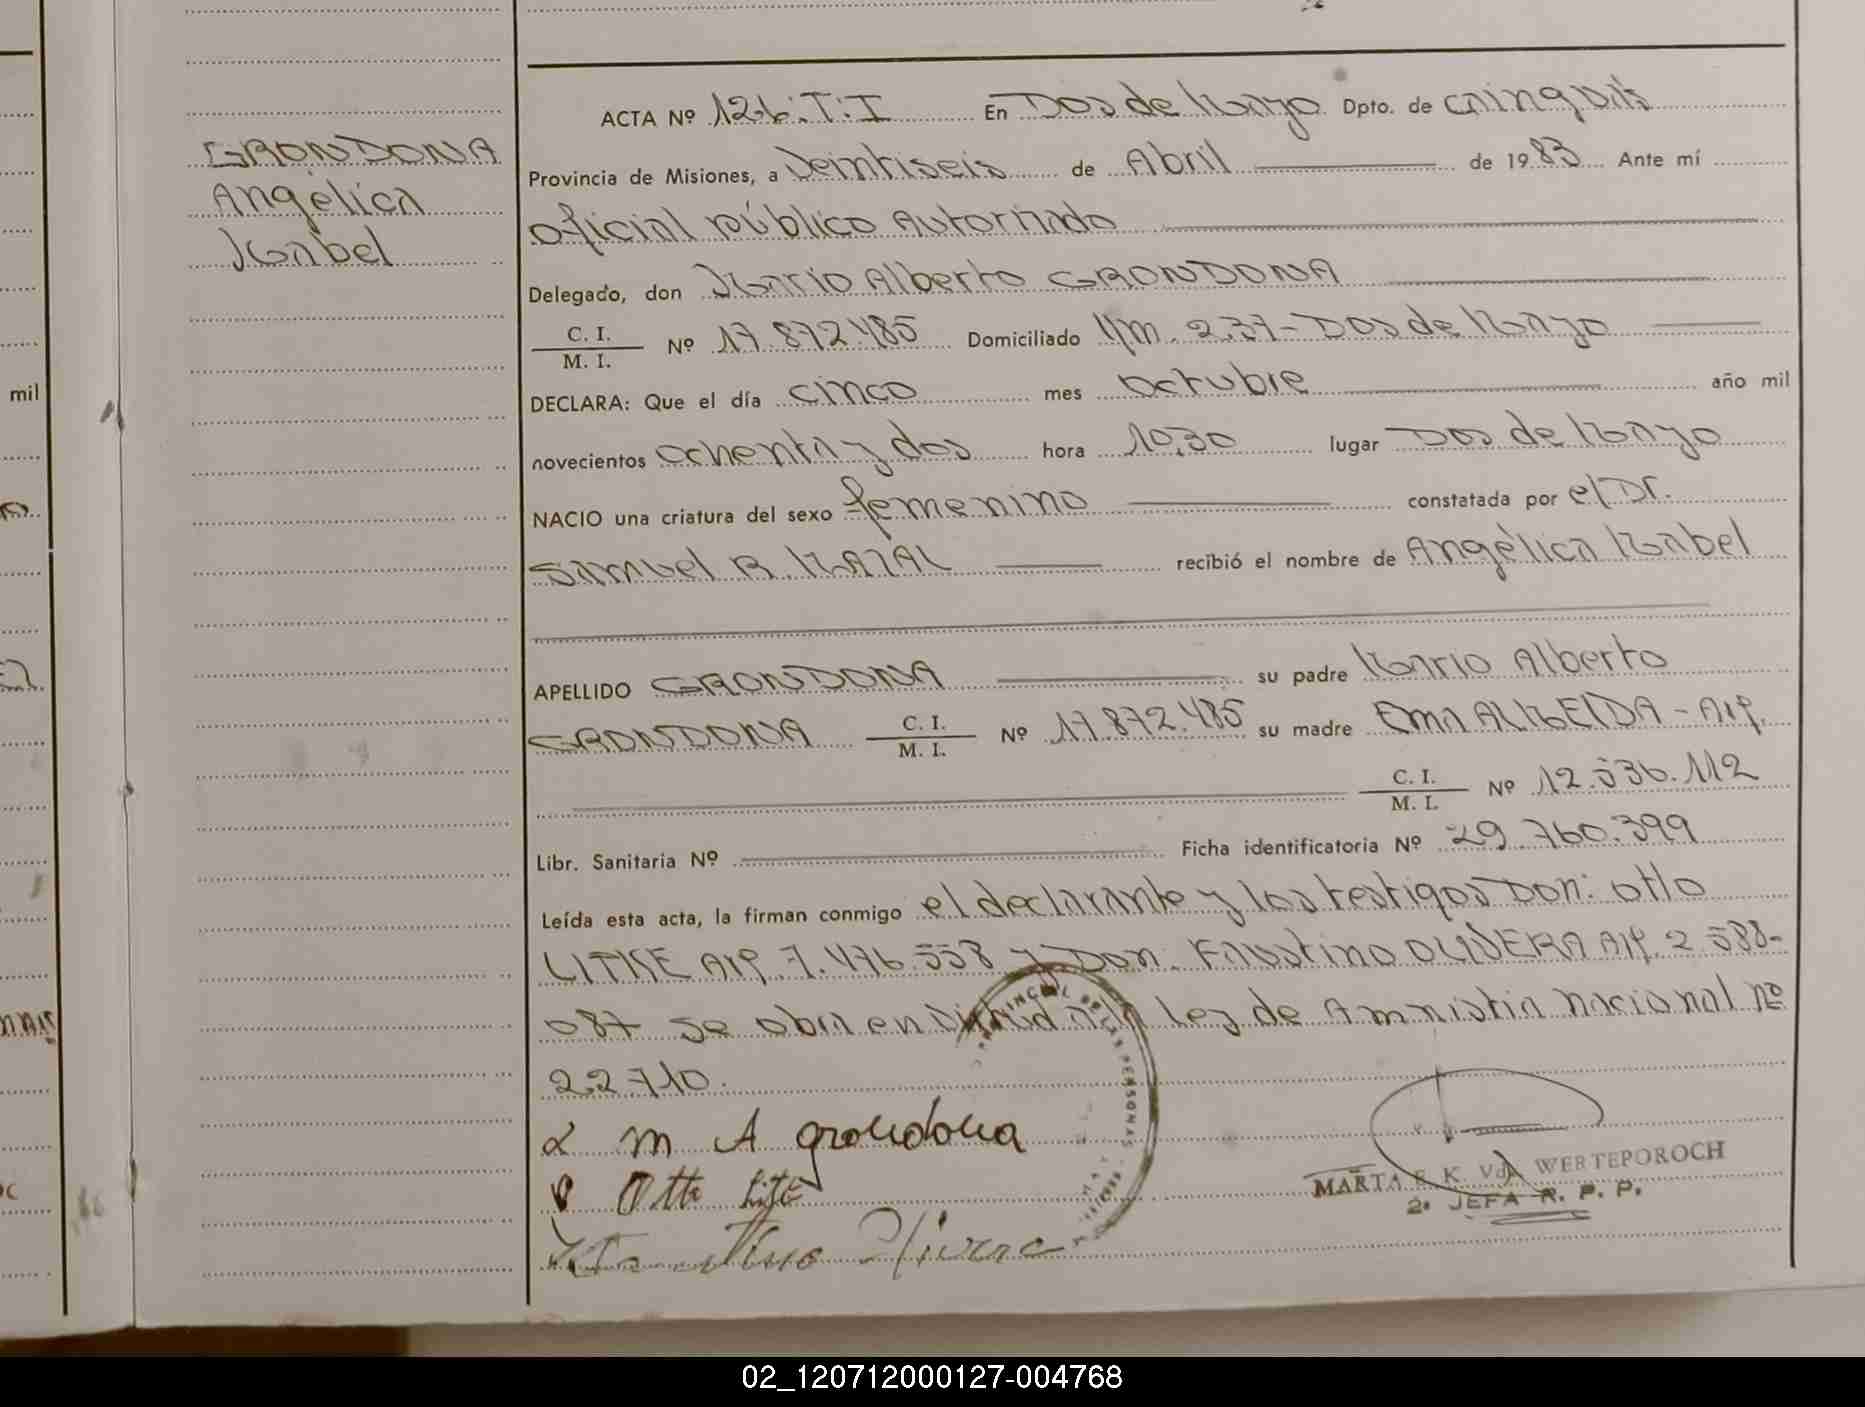 ACTA Nº 126:T:I En Dos de Mayo Dpto. de Cainguás
GRONDONA
Angélica
Mabel
Provincia de Misiones, a Veintiseis de Abril de 1983 Ante mí
Oficial público Autorizado
Delegado, don Mario Alberto GRONDONA
C. I.
M. I.
Nº 17.872.485 Domiciliado Km. 237 - Dos de Mayo
DECLARA: Que el día cinco mes Octubre año mil
novecientos ochenta y dos hora 10,30 lugar Dos de Mayo
NACIO una criatura del sexo femenino constatada por el Dr.
Samuel R. MAZAL recibió el nombre de Angélica Mabel
APELLIDO GRONDONA su padre Mario Alberto
GRONDONA C. I.
M. I.
Nº 17.872.485 su madre Ema ALMEIDA - Arg.
C. I.
M. I.
Nº 12.536.112
Libr. Sanitaria Nº Ficha identificatoria Nº 29.760.399
Leída esta acta, la firman conmigo el declarante y los testigos Don: Otto
LITKE Arg. 7.476.558 y Don: Faustino OLIVERA Arg. 2.588-
087 Se obra en Virtud a la Ley de Amnistia Nacional Nº
22.710.
M A Grondona
Otto Litke
Faustino Olivera
PROVINCIAL DE LAS PERSONAS
MARTA E. K. Vda. WERTEPOROCH
2º JEFA R. P. P.
mil
02_120712000127-004768